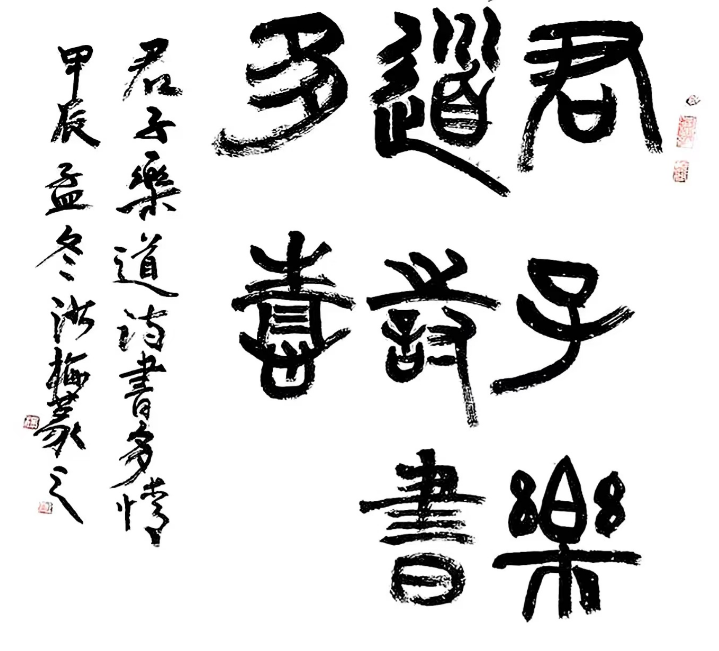 君子樂
道詩書
多情
君子樂道詩書多情
甲辰孟冬沙梅篆之